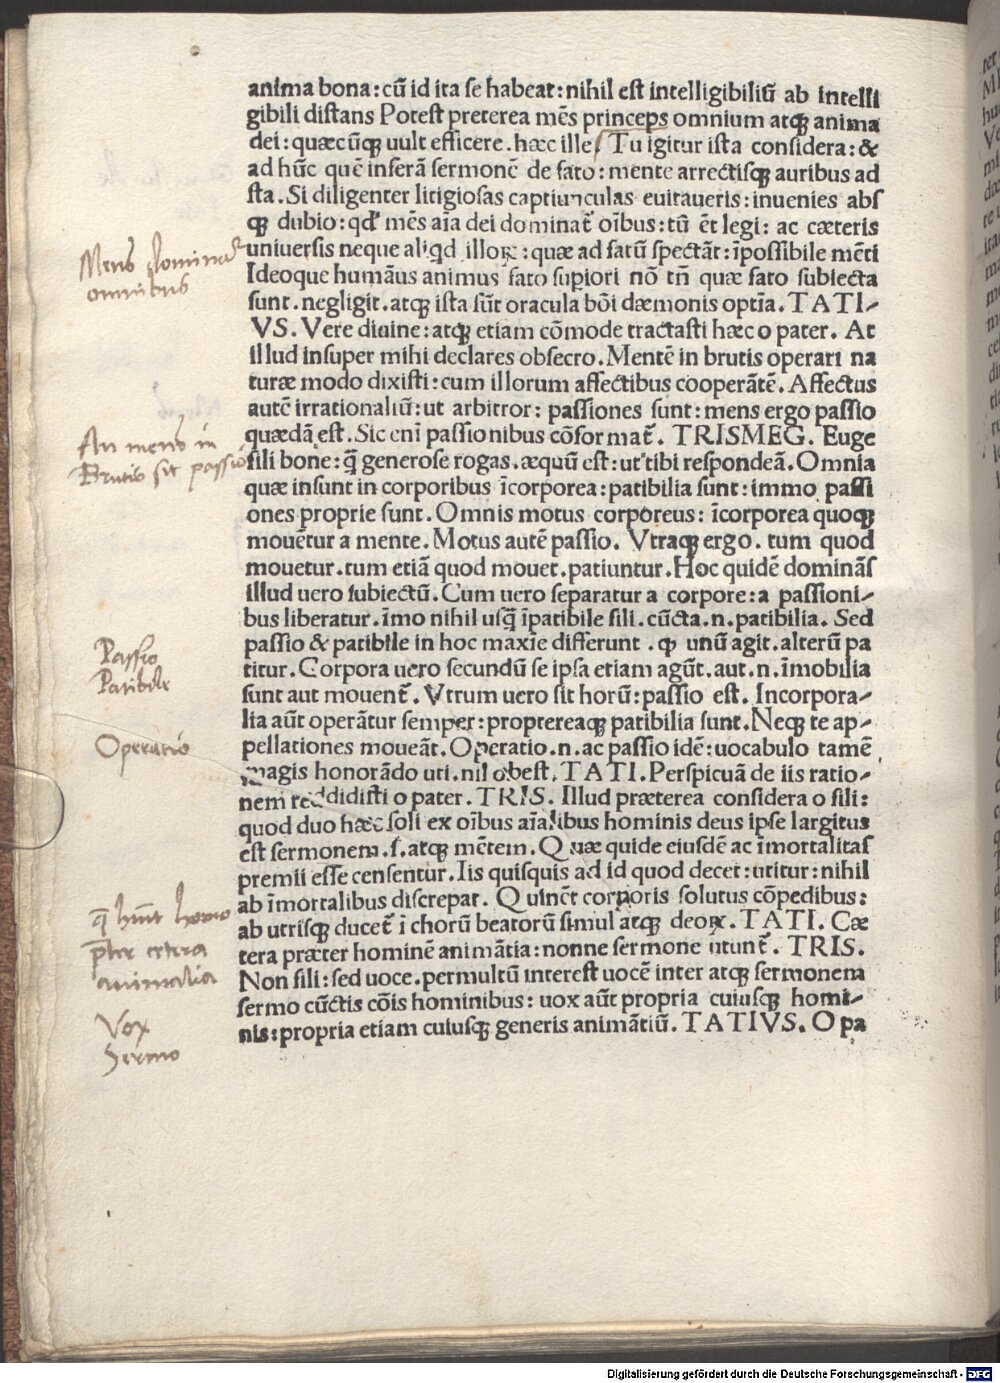 anima bona:cū id ita se habeat:nihil est intelligibiliū ab intelli
gibili distans Potest preterea mēs princeps omnium atqꝫ anima
dei:quæcūqꝫ uult efficere.hæc ille Tu igitur ista considera:&
ad hūc quē inferā sermonē de fato:mente arrectisqꝫ auribus ad
sta.Si diligenter litigiosas captiunculas euitaueris:inuenies abs
qꝫ dubio:qd' mēs aīa dei dominat̄ oībus:tū ēt legi:ac cæteris
Mens dominat̄
omnibus
uniuersis neque aliqd illoꝝ:quæ ad fatū spectāt:īpossibile mēti
Ideoque humāus animus fato supiori nō tn̄ quæ fato subiecta
sunt.negligit.atqꝫ ista sūt oracula bōi dæmonis optīa.TATI-
VS.Vere diuine:atqꝫ etiam cōmode tractasti hæc o pater. At
illud insuper mihi declares obsecro.Mentē in brutis operari na
turæ modo dixisti:cum illorum affectibus cooperātē.Affectus
autē irrationaliū:ut arbitror: passiones sunt:mens ergo passio
An mens in
Brutis sit passio
quædā est.Sic enī passionibus cōformat̄. TRISMEG. Euge
fili bone:q̄ generose rogas.æquū est:ut tibi respondeā.Omnia
quæ insunt in corporibus īcorporea:patibilia sunt:immo passi
ones proprie sunt.Omnis motus corporeus:īcorporea quoqꝫ
mouētur a mente.Motus autē passio. Vtraqꝫ ergo.tum quod
mouetur.tum etiā quod mouet.patiuntur.Hoc quidē domināſ
illud uero subiectū.Cum uero separatur a corpore:a passioni-
bus liberatur.īmo nihil usq̄ īpatibile fili.cūcta.n.patibilia. Sed
Passio
Patibile
passio & patibile in hoc maxīe differunt.ꝙ unū agit.alterū pa
titur.Corpora uero secundū se ipsa etiam agūt.aut.n.īmobilia
sunt aut mouent̄. Vtrum uero sit horū:passio est. Incorpora-
lia aūt operātur semper:propterea qꝫ patibilia sunt.Neqꝫ te ap-
Operatio
pellationes moueāt.Operatio.n.ac passio idē:uocabulo tamē
magis honorādo uti.nil obest.TATI.Perspicuā de iis ratio-
nem reddidisti o pater.TRIS. Illud præterea considera o fili:
quod duo hæc soli ex oībus aīalibus hominis deus ipse largitus
est sermonem.s.atqꝫ mētem.Quæ quide eiusdē ac īmortalitas
premii esse censentur.Iis quisquis ad id quod decet:utitur:nihil
ab īmortalibus discrepat. Quinēt corporis solutus cōpedibus:
q̄ hn̄t homo
p̄ter cetera
animalia
ab utrisqꝫ ducet̄ ī chorū beatorū simul atqꝫ deoꝝ.TATI.Cæ
tera præter hominē animātia:nonne sermone utunt̄. TRIS.
Non fili:sed uoce.permultū interest uocē inter atqꝫ sermonem
sermo cūctis cōis hominibus:uox aūt propria cuiusqꝫ homi-
Vox
Sermo
nis:propria etiam cuiusqꝫ generis animātiū.TATIVS.O pa
Digitalisierung gefördert durch die Deutsche Forschungsgemeinschaft - DFG